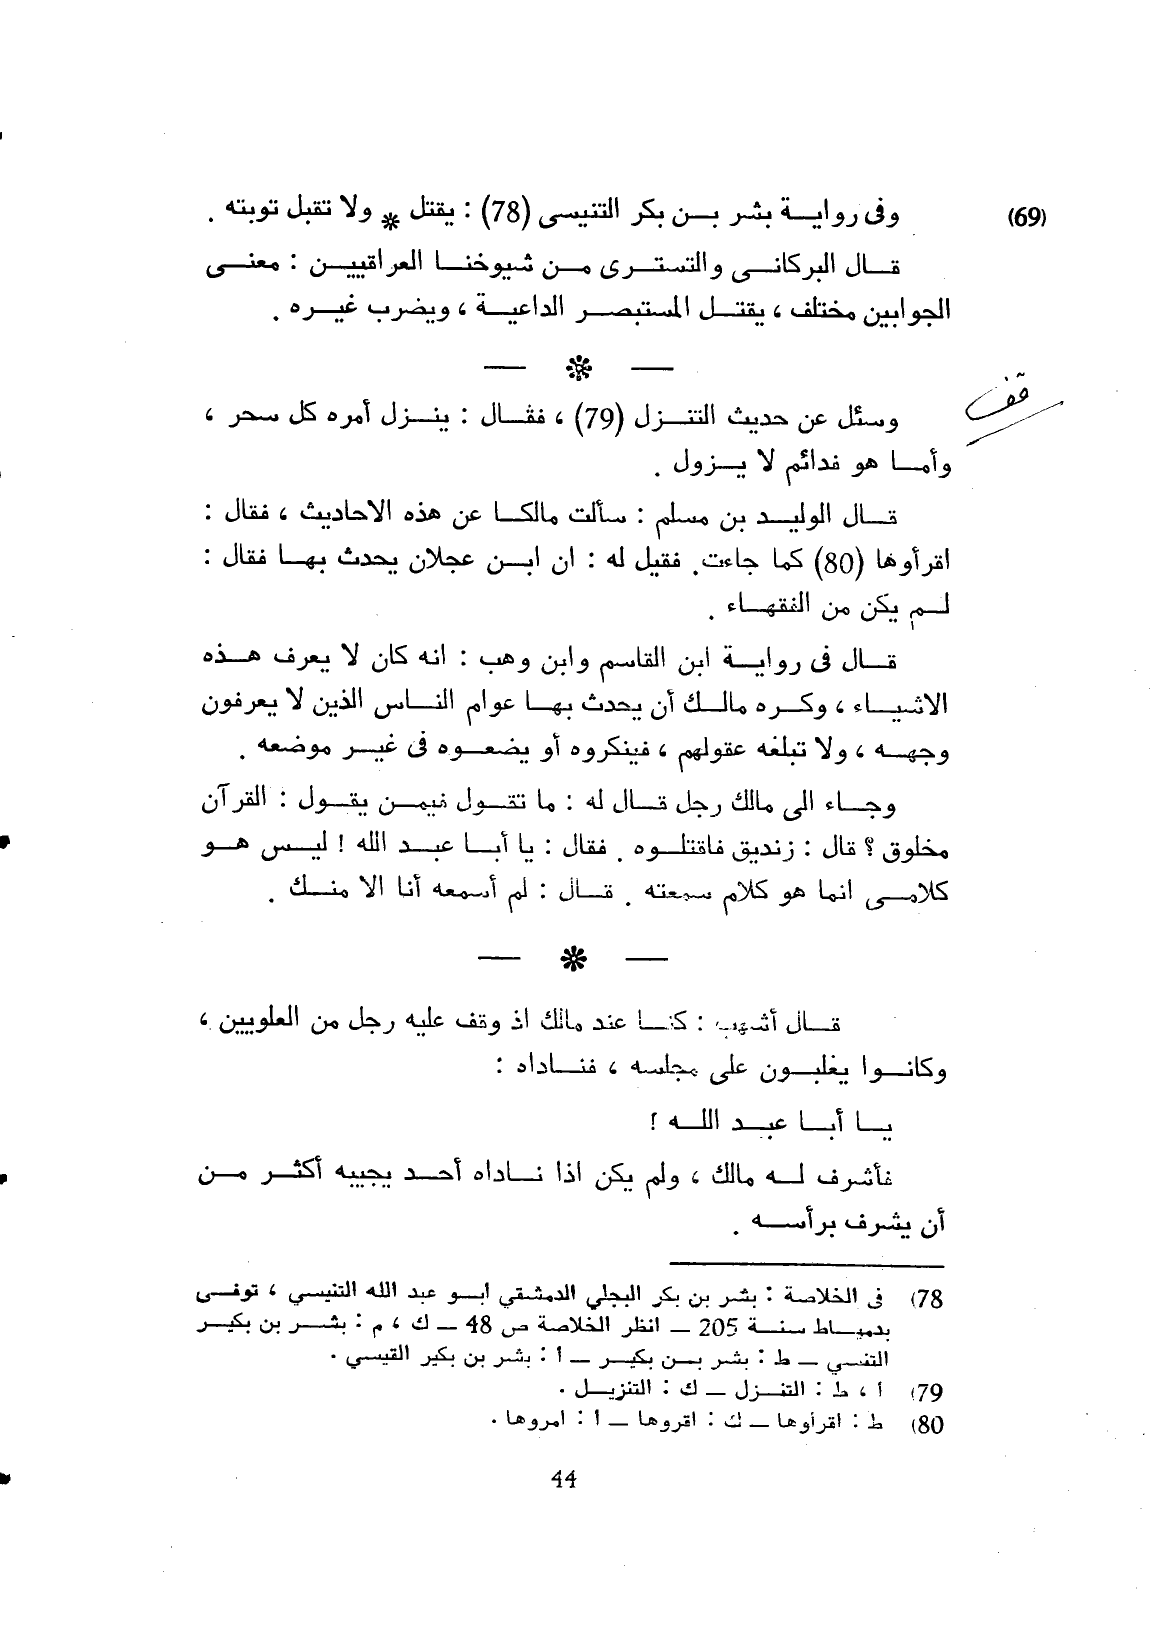 (69) وفى رواية بشر بن بكر التنيسى (78) : يقتل * ولا تقبل توبته .
قال البركانى والتسترى من شيوخنا العراقيين : معنى
الجوابين مختلف ، يقتل المستبصر الداعية ، ويضرب غيره .
— * —
قف
وسئل عن حديث التنزل (79) ، فقال : ينزل أمره كل سحر ،
وأما هو فدائم لا يزول .
قال الوليد بن مسلم : سألت مالكا عن هذه الاحاديث ، فقال :
اقرأوها (80) كما جاءت . فقيل له : ان ابن عجلان يحدث بها فقال :
لم يكن من الفقهاء .
قال فى رواية ابن القاسم وابن وهب : انه كان لا يعرف هذه
الاشياء ، وكره مالك أن يحدث بها عوام الناس الذين لا يعرفون
وجهه ، ولا تبلغه عقولهم ، فينكروه أو يضعوه فى غير موضعه .
وجاء الى مالك رجل قال له : ما تقول فيمن يقول : القرآن
مخلوق ؟ قال : زنديق فاقتلوه . فقال : يا أبا عبد الله ! ليس هو
كلامى انما هو كلام سمعته . قال : لم أسمعه أنا الا منك .
— * —
قال أشهب : كنا عند مالك اذ وقف عليه رجل من العلويين ،
وكانوا يغلبون على مجلسه ، فناداه :
يا أبا عبد الله !
فأشرف له مالك ، ولم يكن اذا ناداه أحد يجيبه أكثر من
أن يشرف برأسه .
78) فى الخلاصة : بشر بن بكر البجلي الدمشقي ابو عبد الله التنيسي ، توفى
بدمياط سنة 205 — انظر الخلاصة ص 48 — ك ، م : بشر بن بكير
التنسي — ط : بشر بن بكير — أ : بشر بن بكير القيسي .
79) أ ، ط : التنزل — ك : التنزيل .
80) ط : اقرأوها — ك : اقروها — أ : امروها .
44